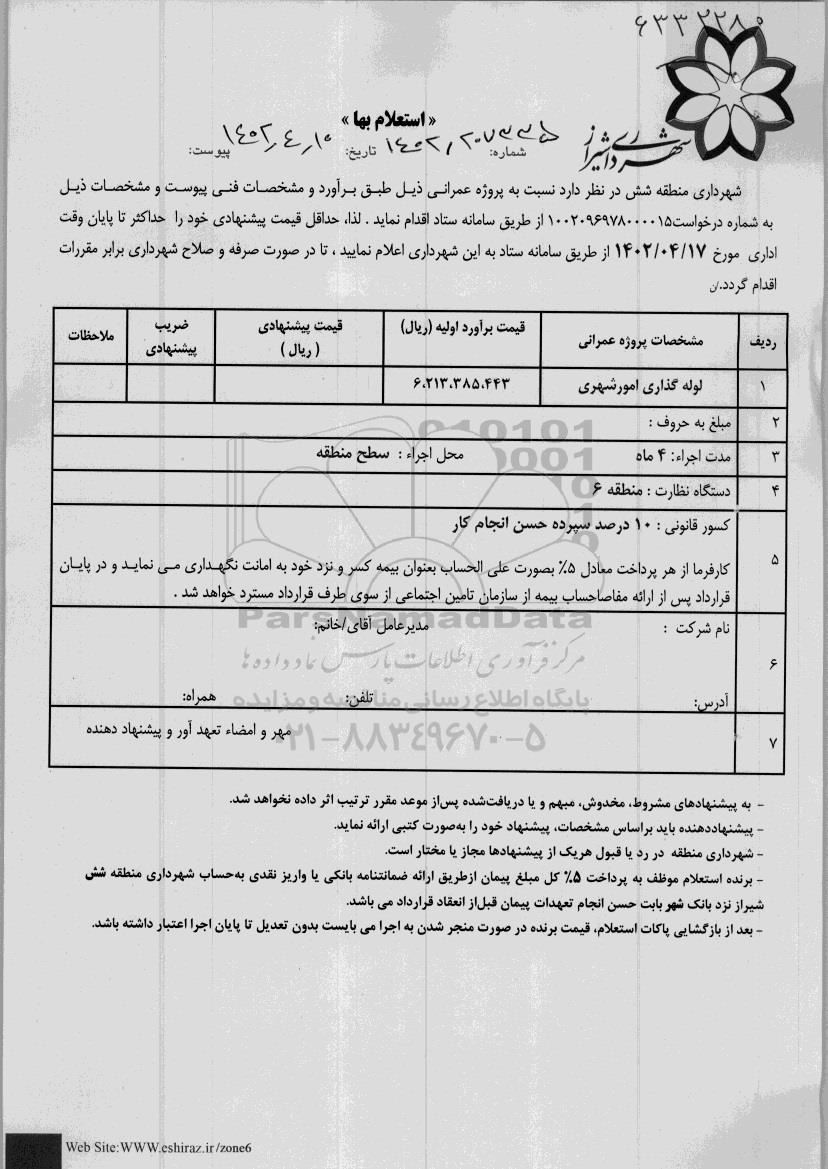 ۶۳۳۲۲۸۰
شهرداری شیراز
« استعلام بها »
شماره: ۱۴۰۲٫۲۰۷۳۳۵ تاریخ: ۱۴۰۲٫۴٫۱۰ پیوست:
شهرداری منطقه شش در نظر دارد نسبت به پروژه عمرانی ذیل طبق برآورد و مشخصات فنی پیوست و مشخصات ذیل
به شماره درخواست۱۰۰۲۰۹۶۹۷۸۰۰۰۰۱۵ از طریق سامانه ستاد اقدام نماید . لذا، حداقل قیمت پیشنهادی خود را حداکثر تا پایان وقت
اداری مورخ ۱۴۰۲/۰۴/۱۷ از طریق سامانه ستاد به این شهرداری اعلام نمایید ، تا در صورت صرفه و صلاح شهرداری برابر مقررات
اقدام گردد./ن
ردیف مشخصات پروژه عمرانی قیمت برآورد اولیه (ریال) قیمت پیشنهادی ( ریال ) ضریب پیشنهادی ملاحظات
۱ لوله گذاری امورشهری ۶،۲۱۳،۳۸۵،۴۴۳
۲ مبلغ به حروف :
۳ مدت اجراء: ۴ ماه محل اجراء : سطح منطقه
۴ دستگاه نظارت : منطقه ۶
۵ کسور قانونی : ۱۰ درصد سپرده حسن انجام کار
کارفرما از هر پرداخت معادل ۵٪ بصورت علی الحساب بعنوان بیمه کسر و نزد خود به امانت نگهداری می نماید و در پایان
قرارداد پس از ارائه مفاصاحساب بیمه از سازمان تامین اجتماعی از سوی طرف قرارداد مسترد خواهد شد .
ParsNamadData
۶ نام شرکت : مدیرعامل آقای/خانم:
مرکز فرآوری اطلاعات پارس نماد داده ها
آدرس: تلفن: همراه:
پایگاه اطلاع رسانی مناقصه و مزایده
۷ مهر و امضاء تعهد آور و پیشنهاد دهنده
۰۲۱-۸۸۳۴۹۶۷۰-۵
- به پیشنهادهای مشروط، مخدوش، مبهم و یا دریافت‌شده پس‌از موعد مقرر ترتیب اثر داده نخواهد شد.
- پیشنهاددهنده باید براساس مشخصات، پیشنهاد خود را به‌صورت کتبی ارائه نماید.
- شهرداری منطقه در رد یا قبول هریک از پیشنهادها مجاز یا مختار است.
- برنده استعلام موظف به پرداخت ۵٪ کل مبلغ پیمان ازطریق ارائه ضمانتنامه بانکی یا واریز نقدی به‌حساب شهرداری منطقه شش
شیراز نزد بانک شهر بابت حسن انجام تعهدات پیمان قبل‌از انعقاد قرارداد می باشد.
- بعد از بازگشایی پاکات استعلام، قیمت برنده در صورت منجر شدن به اجرا می بایست بدون تعدیل تا پایان اجرا اعتبار داشته باشد.
Web Site:WWW.eshiraz.ir/zone6